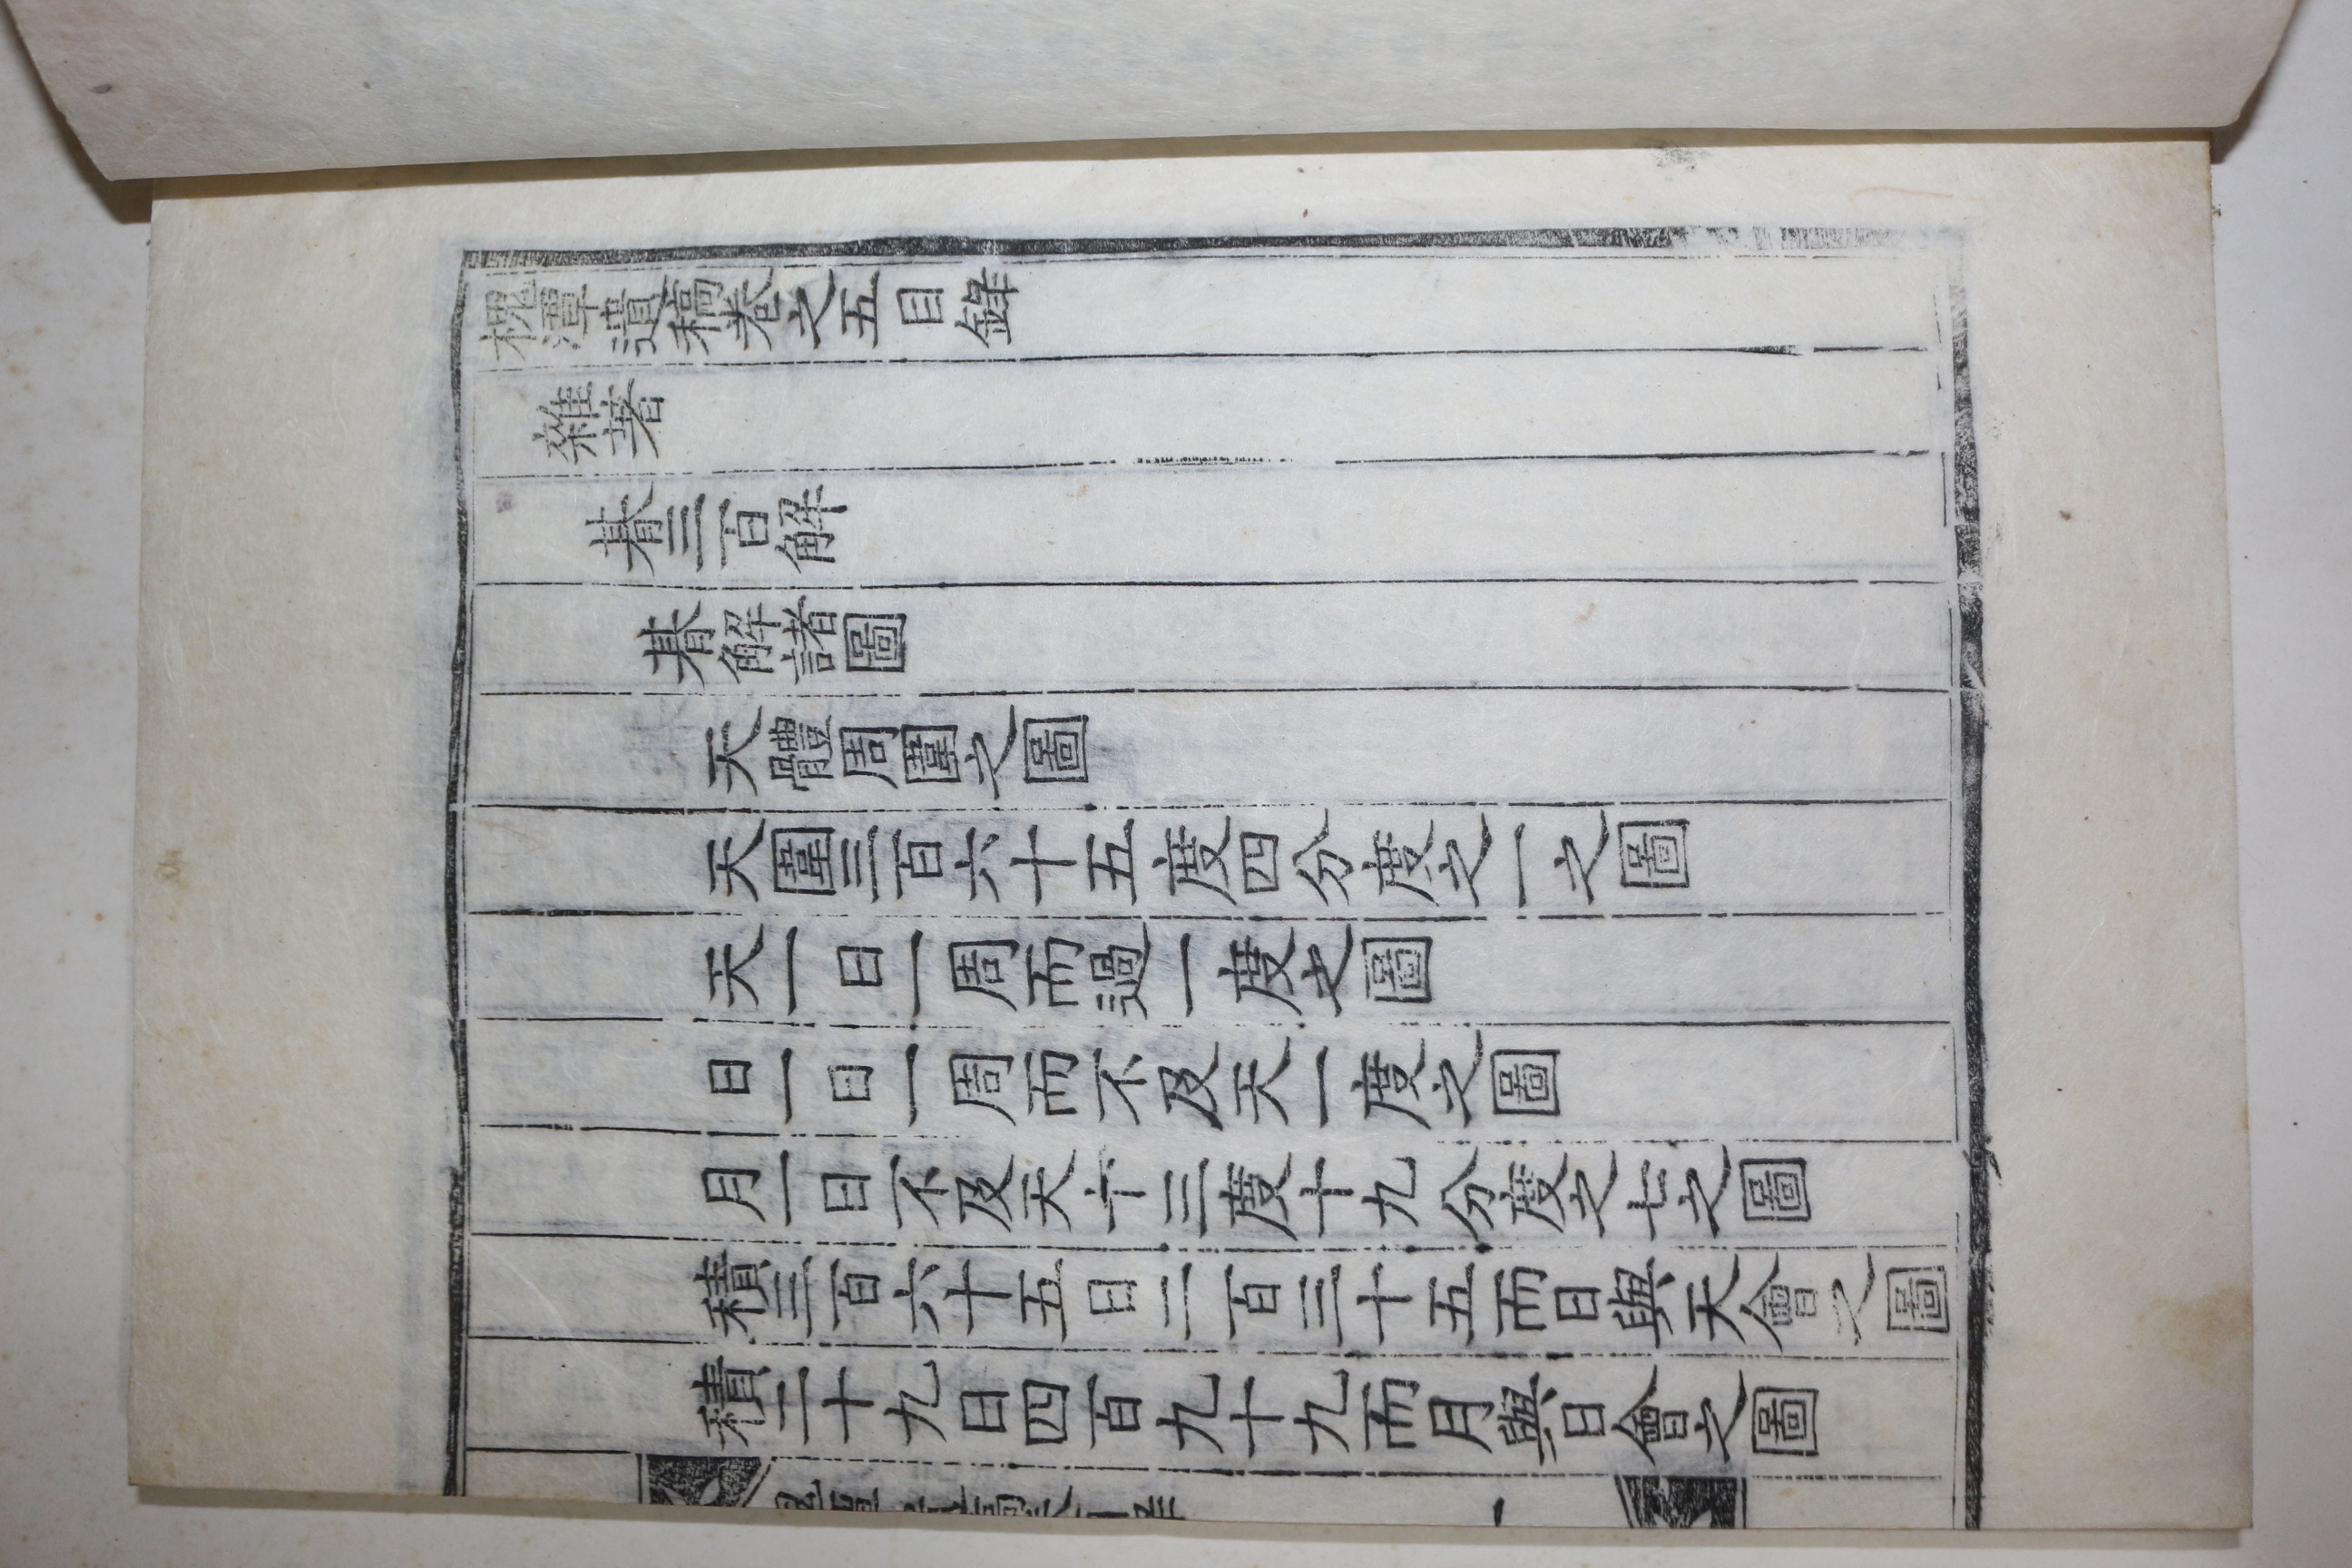 槐潭遺稿卷之五目錄
雜著
朞三百解
朞解諸圖
天體周圍之圖
天圍三百六十五度四分度之一之圖
天一日一周而過一度之圖
日一日一周而不及天一度之圖
月一日不及天十三度十九分度之七之圖
積三百六十五日二百三十五而日與天會之圖
積二十九日四百九十九而月與日會之圖